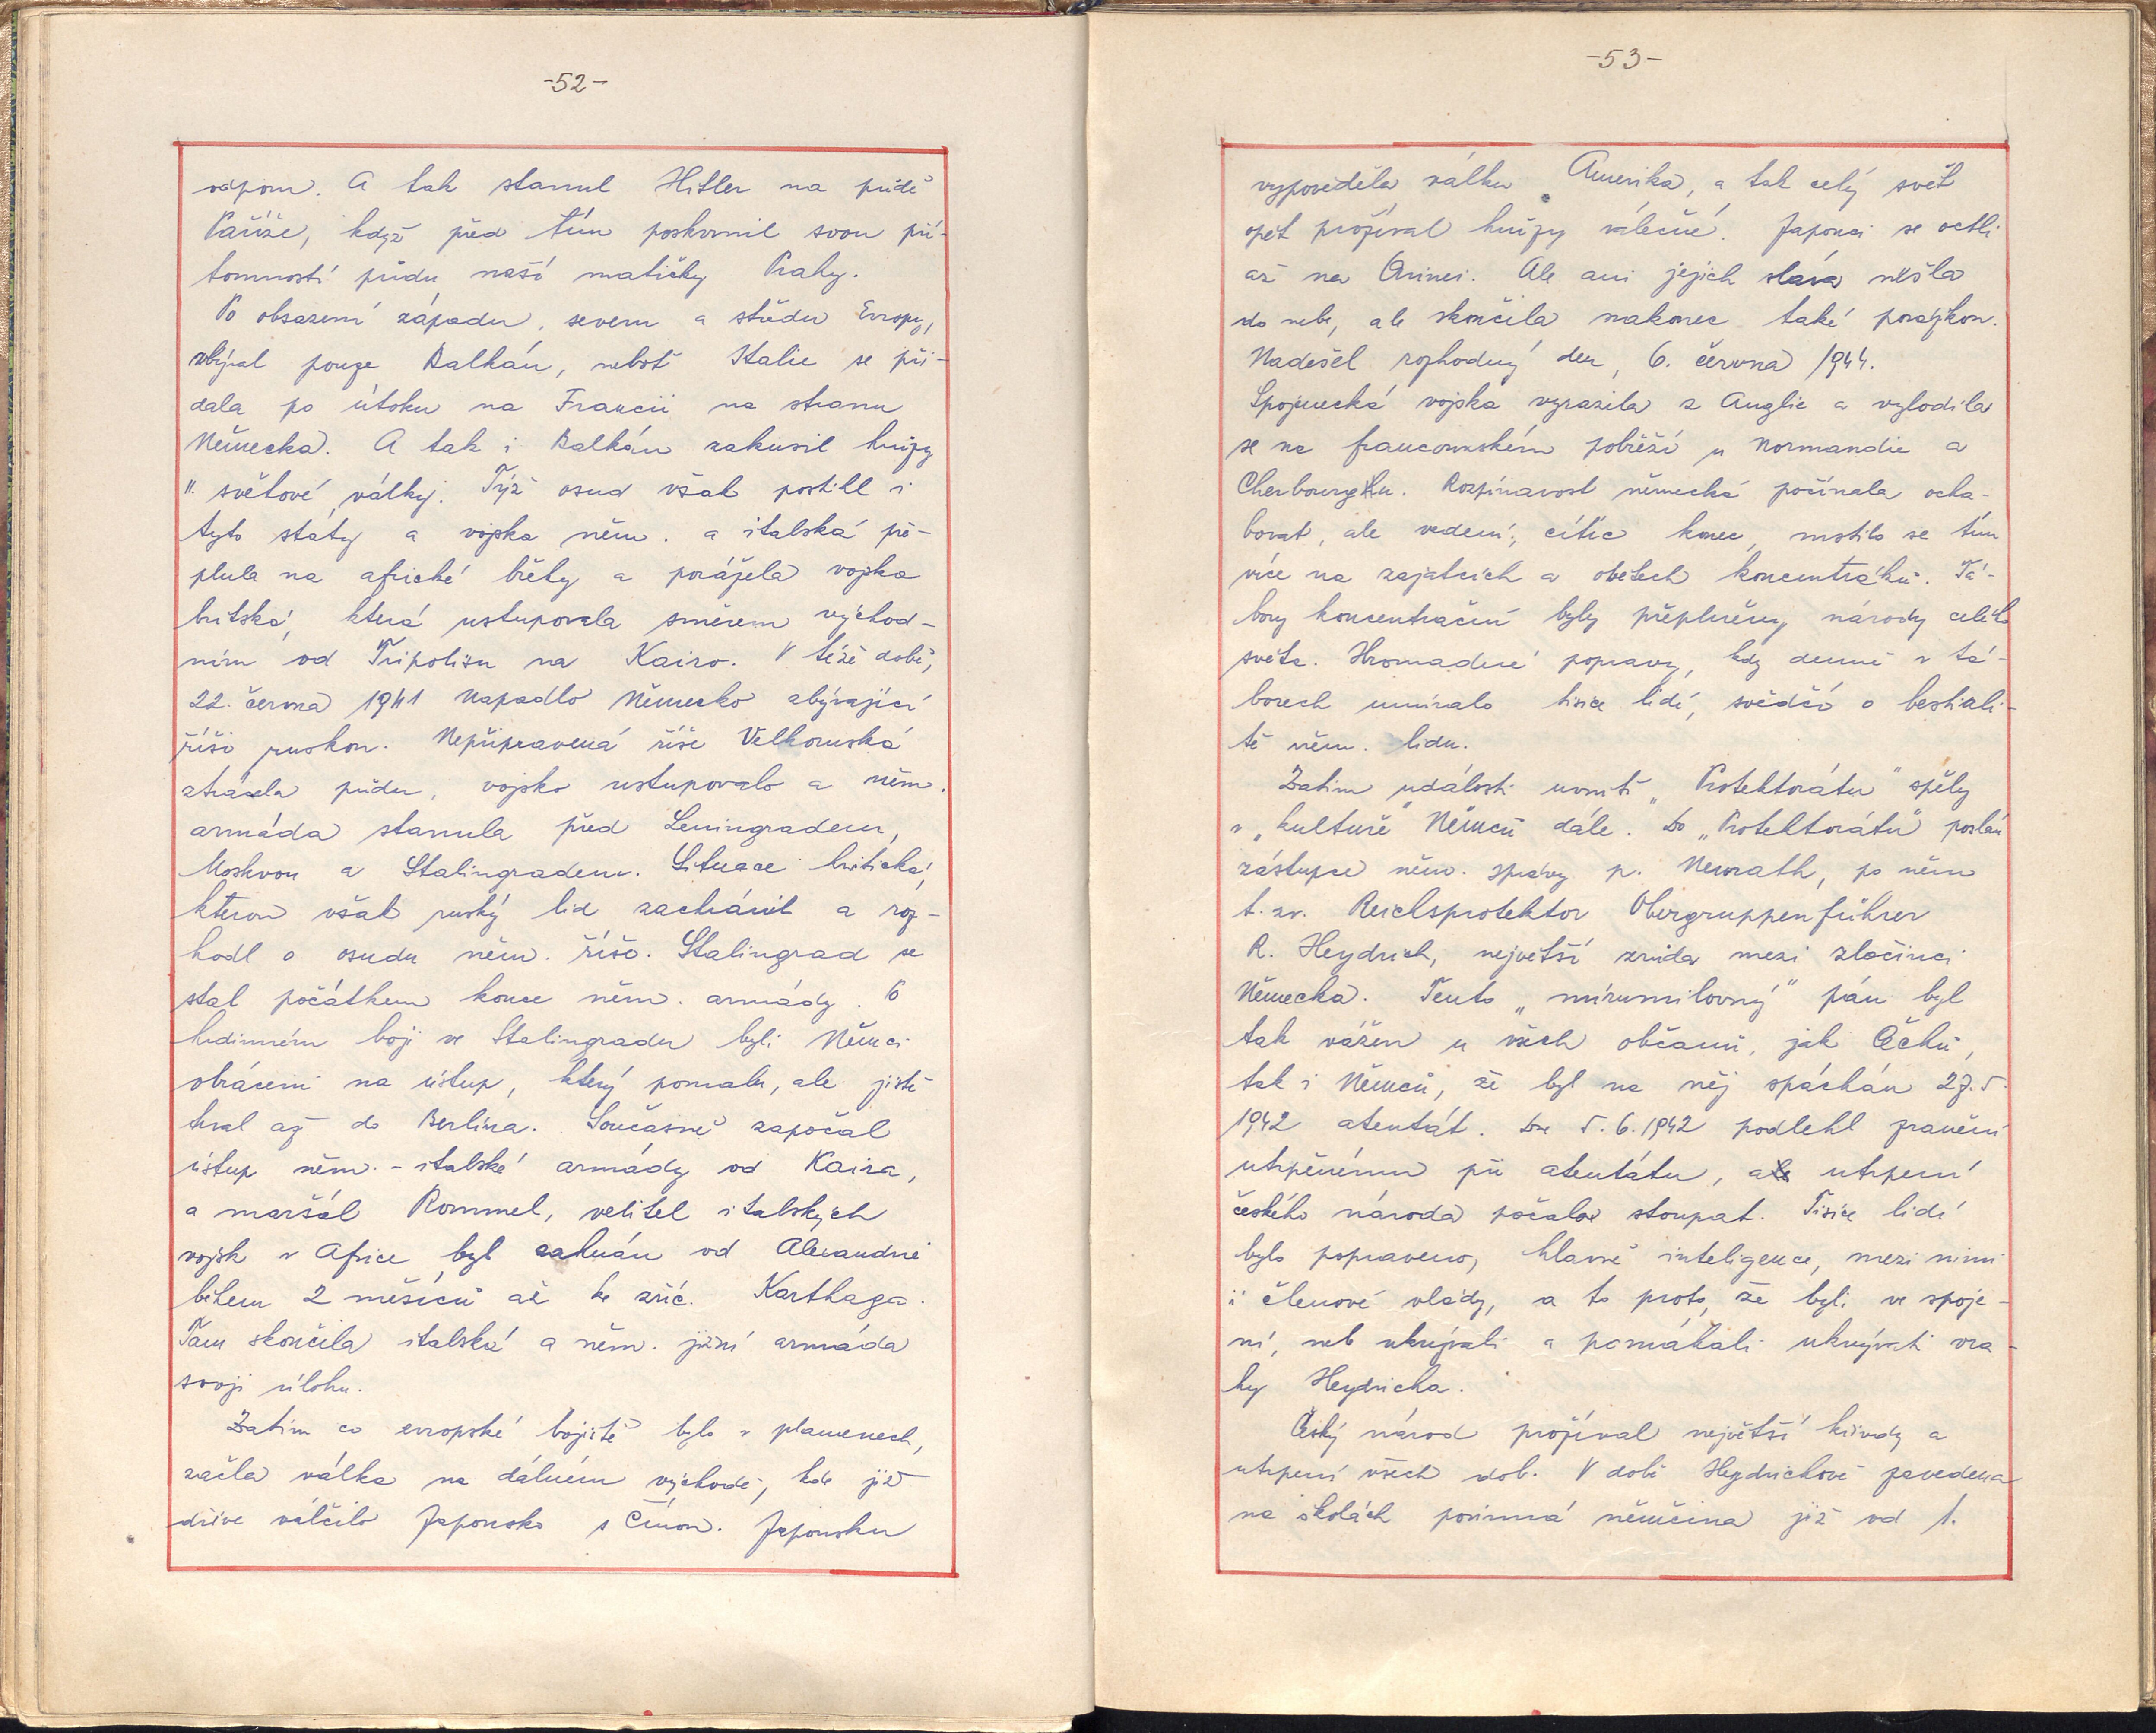 -52-
vápom. A tak stanul Hitler na půdě
Paříže, když před tím poskvrnil svou pří-
tomností půdu naší matičky Prahy.
Po obsazení západu, severu a středu Evropy,
zbýval pouze Balkán, neboť Italie se při-
dala po útoku na Francii na stranu
Německa. A tak i Balkán zakusil hrůzy
II. světové války. Týž osud však postihl i
tyto státy a vojska něm. a italská pře-
plula na africké břehy a porážela vojska
britská, která ustupovala směrem východ-
ním od Tripolisu na Kairo. V téže době,
22. června 1941 napadlo Německo zbývající
říši ruskou. Nepřipravená říše Velkoruská
ztrácela půdu, vojsko ustupovalo a něm.
armáda stanula před Leningradem,
Moskvou a Stalingradem. Situace kritická,
kterou však ruský lid zachránil a roz-
hodl o osudu něm. říše. Stalingrad se
stal počátkem konce něm. armády. Po
hrdinném boji ve Stalingradu byli Němci
obráceni na ústup, který pomalu, ale jistě
trval až do Berlína. Současně započal
ústup něm. - italské armády od Kaira,
a maršál Rommel, velitel italských
vojsk v Africe byl zahnán od Alexandrie
během 2 měsíců až ke zříc. Karthaga.
Tam skončila italská a něm. jižní armáda
svoji úlohu.
Zatím co evropské bojiště bylo v plamenech,
začla válka na dálném východě, kde již
dříve válčilo Japonsko s Čínou. Japonsku
-53-
vypověděla válku Amerika, a tak celý svět
opět prožíval hrůzy válečné. Japonci se octli
až na Guinei. Ale ani jejich sláva nešla
do nebe, ale skončila nakonec také porážkou.
Nadešel rozhodný den, 6. června 1944.
Spojenecká vojska vyrazila z Anglie a vylodila
se na francouzském pobřeží u Normandie a
Cherbourghu. Rozpínavost německá počínala ocha-
bovat, ale vedení, cítíc konec, mstilo se tím
více na zajatcích a obětech koncentráků. Tá-
bory koncentrační byly přeplněny národy celého
světa. Hromadné popravy, kdy denně v tá-
borech umíralo tisíce lidí, svědčí o bestiali-
tě něm. lidu.
Zatím události uvnitř „Protektorátu" spěly
v „kultuře" Němců dále. Do „Protektorátu" poslán
zástupce něm. správy p. Neurath, po něm
t. zv. Reichsprotektor Obergruppenführer
R. Heydrich, největší zrůda mezi zločinci
Německa. Tento „mírumilovný" pán byl
tak vážen u všech občanů, jak Čechů,
tak i Němců, že byl na něj spáchán 27. 5.
1942 atentát. Dne 5. 6. 1942 podlehl zranění
utrpěnému při atentátu, ale utrpení
českého národa počalo stoupat. Tisíce lidí
bylo popraveno, hlavně inteligence, mezi nimi
i členové vlády, a to proto, že byli ve spoje-
ní, neb ukrývali a pomáhali ukrývati vra-
hy Heydricha.
Český národ prožíval největší křivdy a
utrpení všech dob. V době Heydrichově zavedena
na školách povinná němčina již od 1.